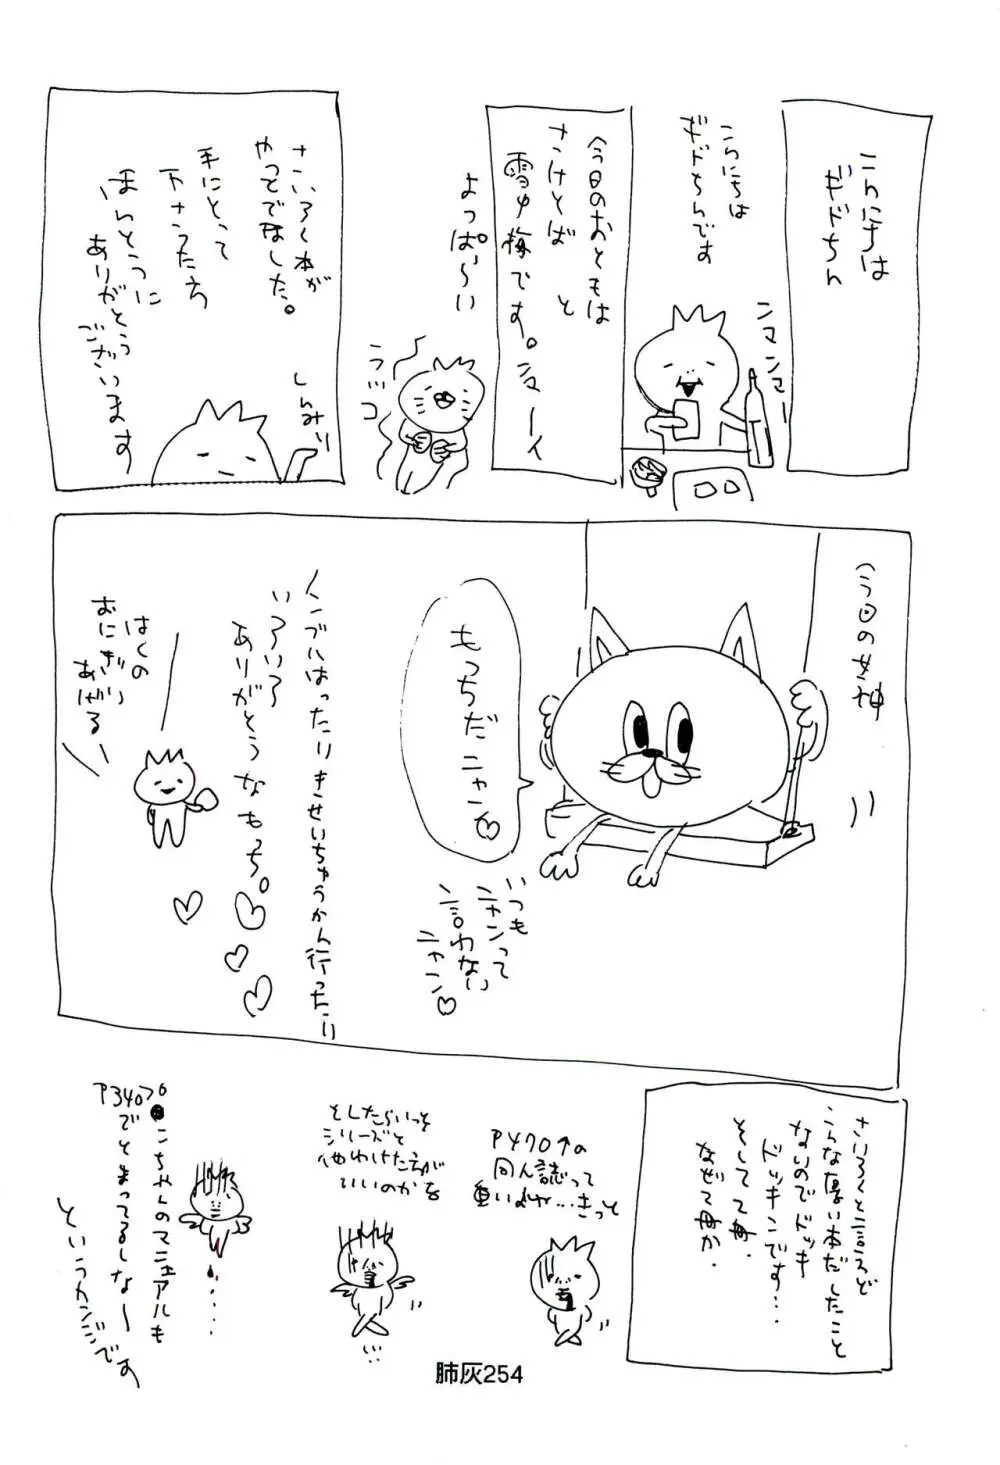 こんにちは
ギドちん
こんにちは
ギドちんです
ンマンマー
今日のおともは
さけとば と
雪中梅です。ンマーイ
よっぱらい
ウッコ
さいろく本が
やっとでました。
手にとって
下さった方
ほんとうに
ありがとう
ございます
しんみり
今日の女神
もっちだニャン♡
いつも
ニャンって
言わない
ニャン♡
いろいろ
ありがとうなもっち。
ぼくの
おにぎり
あげる
さいろくと言えど
こんな厚い本だしたこと
ないのでドッキ
ドッキンです…
そして再。
なぜて再か。
P470↑の
同人誌って
重いよね…きっと
としたらいっそ
シリーズと
使わけた方が
いいのかな
P340〜
でとまってるしな〜
というカンジです
肺灰254